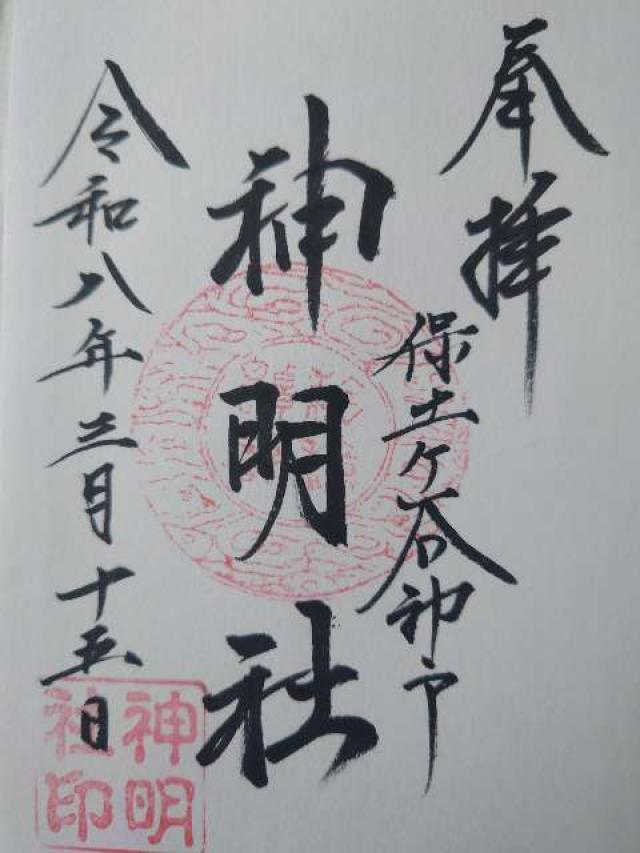 奉拝
保土ケ谷神戸
神明社
令和八年三月十五日
神明
社印